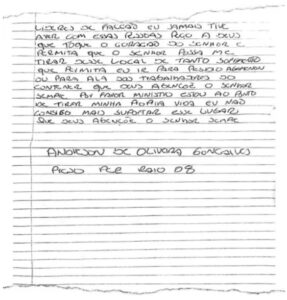 LIDERES DE FACÇÃO EU JAMAIS TIVE
COM ESSAS PESSOAS PEÇO A DEUS
QUE TOQUE O CORAÇÃO DO SENHOR E
PERMITA QUE O SENHOR POSSA ME
TIRAR DESSE LOCAL DE TANTO SOFRIMENTO
QUE PERMITA EU IR PARA PRESIDIO
OU PARA ALA DOS TRABALHADORES DO
CONTENER QUE DEUS ABENÇOE O SENHOR
SEMPRE POR FAVOR MINISTRO ESTOU AO PONTO
DE TIRAR MINHA PROPRIA VIDA EU NÃO
CONSIGO MAIS SUPORTAR ESSE LUGAR
QUE DEUS ABENÇOE O SENHOR SEMPRE
ANDERSON DE OLIVEIRA GONCALVES
PCE RAIO 08